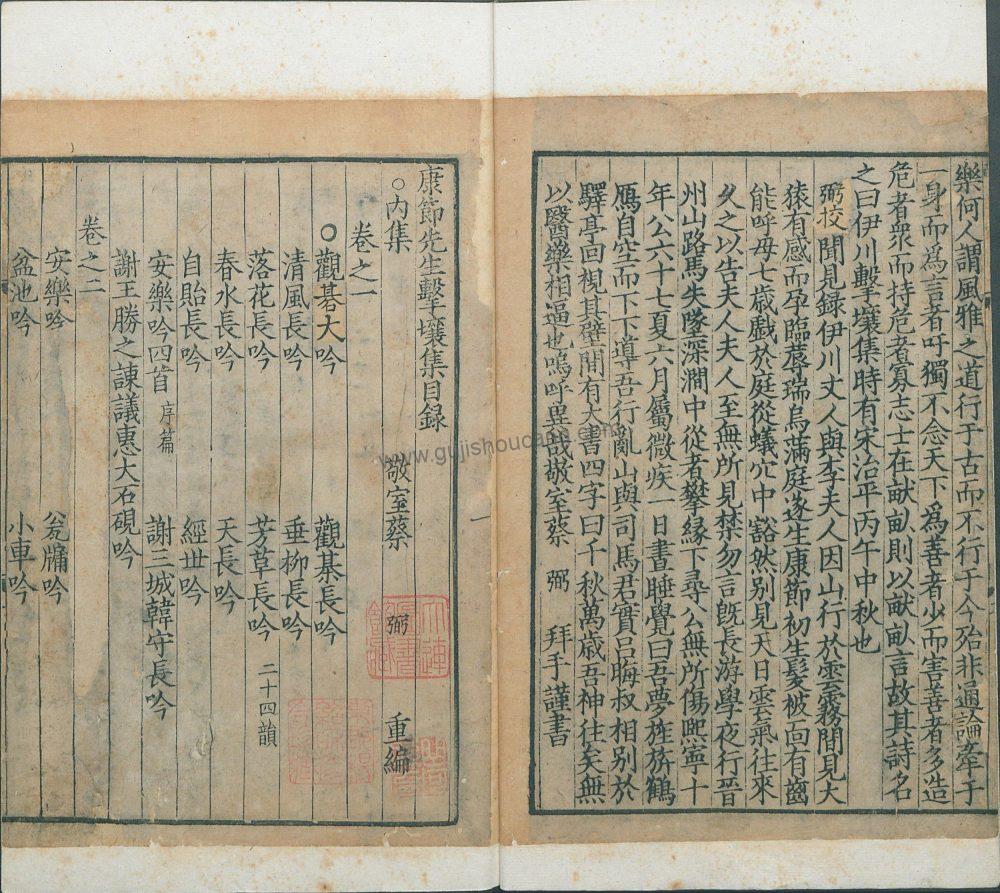 樂何人謂風雅之道行于古而不行于今殆非通論牽于
一身而為言者吁獨不念天下為善者少而害善者多造
危者衆而持危者寡志士在畎畝則以畎畝言故其詩名
之曰伊川擊壤集時有宋治平丙午中秋也
弼挍聞見録伊川丈人與李夫人因山行於雲霧間見大
猿有感而孕臨蓐瑞烏滿庭遂生康節初生髮被面有齒
能呼母七歲戲於庭從蟻穴中豁然别見天日雲氣往來
久之以告夫人夫人至無所見禁勿言旣長游學夜行晉
州山路馬失墜深澗中從者攀縁下尋公無所傷熙寧十
年公六十七夏六月屬微疾一日晝睡覺曰吾夢旌旂鶴
鴈自空而下下導吾行亂山與司馬君實吕晦叔相别於
驛亭回視其壁間有大書四字曰千秋萬歲吾神往矣無
以醫藥相逼也嗚呼異哉敬室蔡 弼 拜手謹書
康節先生擊壤集目録
○內集 敬室蔡 弼 重編
卷之一
○觀棊大吟 觀棊長吟
清風長吟 垂柳長吟
落花長吟 芳草長吟 二十四韻
春水長吟 天長吟
自貽長吟 經世吟
安樂吟四首 序篇 謝三城韓守長吟
謝王勝之諫議惠大石硯吟
卷之二
安樂吟 瓮牖吟
盆池吟 小車吟
一
www.gujishoucang.com